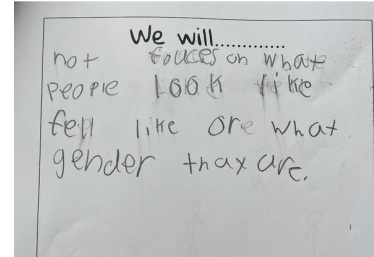 We will.............
not fouces on what
people look like
fell like ore what
gender thax are.